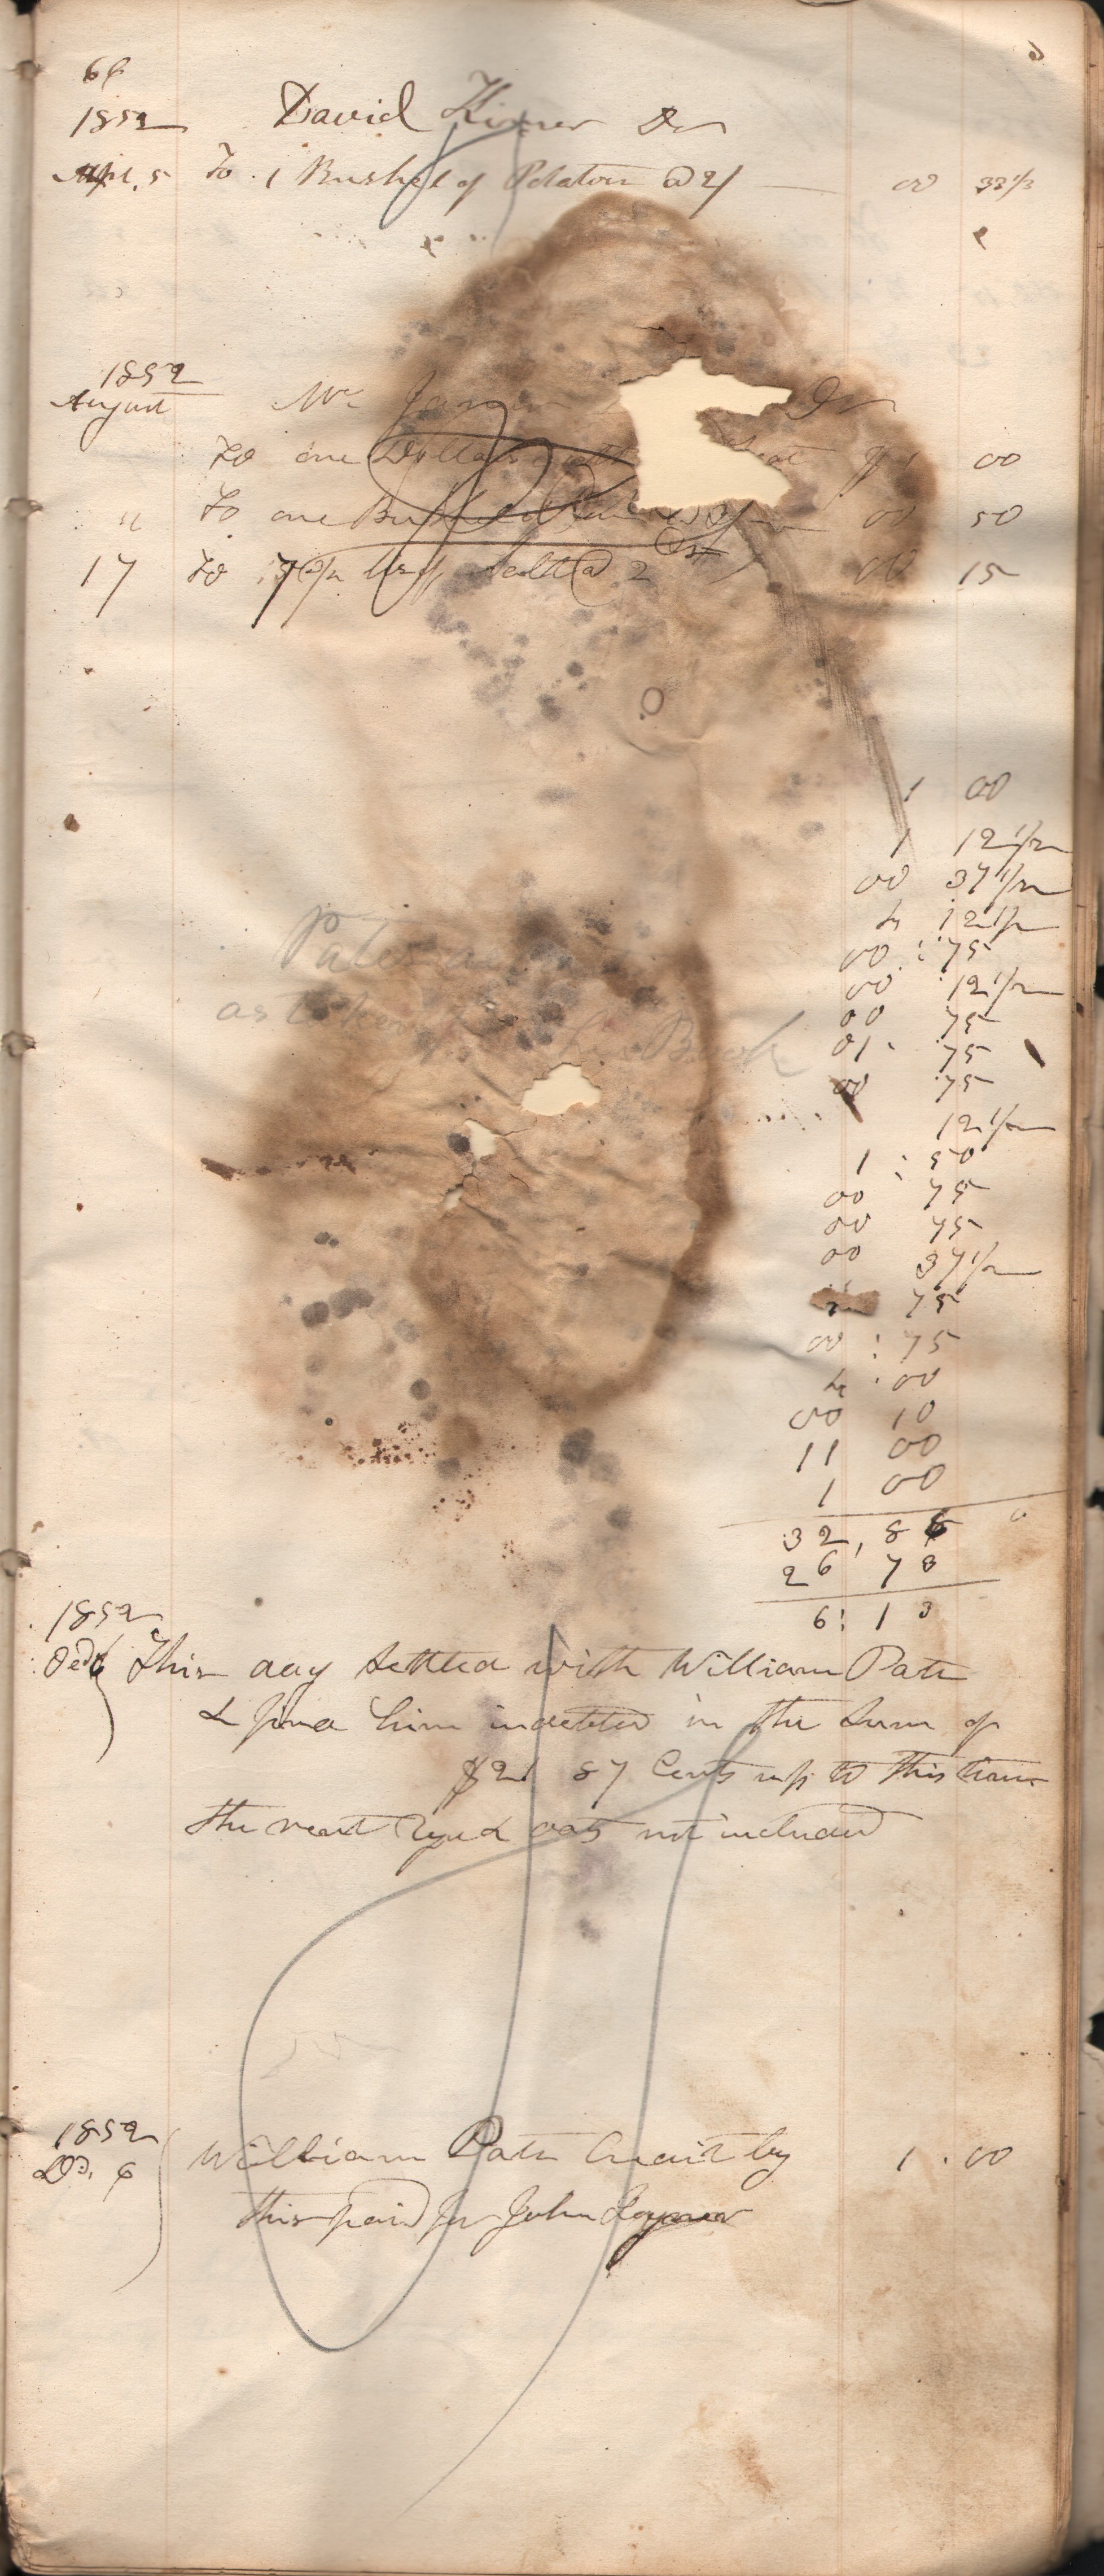 66
1852 David Kisner Dr
Apl. 5 To 1 Bushel of Potatoes @ 2/ — 00 33 1/3
1852
August Mr James Dr
To one Dollar $1 00
" To one Bushel 00 50
17 To 7 1/2 lbs of Salt @ 2 Cts 00 15
1 00
1 12 1/2
00 37 1/2
4 12 1/2
00 : 75
00 12 1/2
00 75
01 75
00 75
12 1/2
1 : 50
00 75
00 75
00 37 1/2
75
00 : 75
4 . 00
00 10
11 00
1 00
32, 86
26 73
6: 13
as book his Book
1852
Dec 6 This day settled with William Pate
& find him indebted in the Sum of
$2 87 Cents up to this time
the rent Rye & oats not included
1852
De. 6 William Pate Credit by 1 . 00
this paid for John Joyner